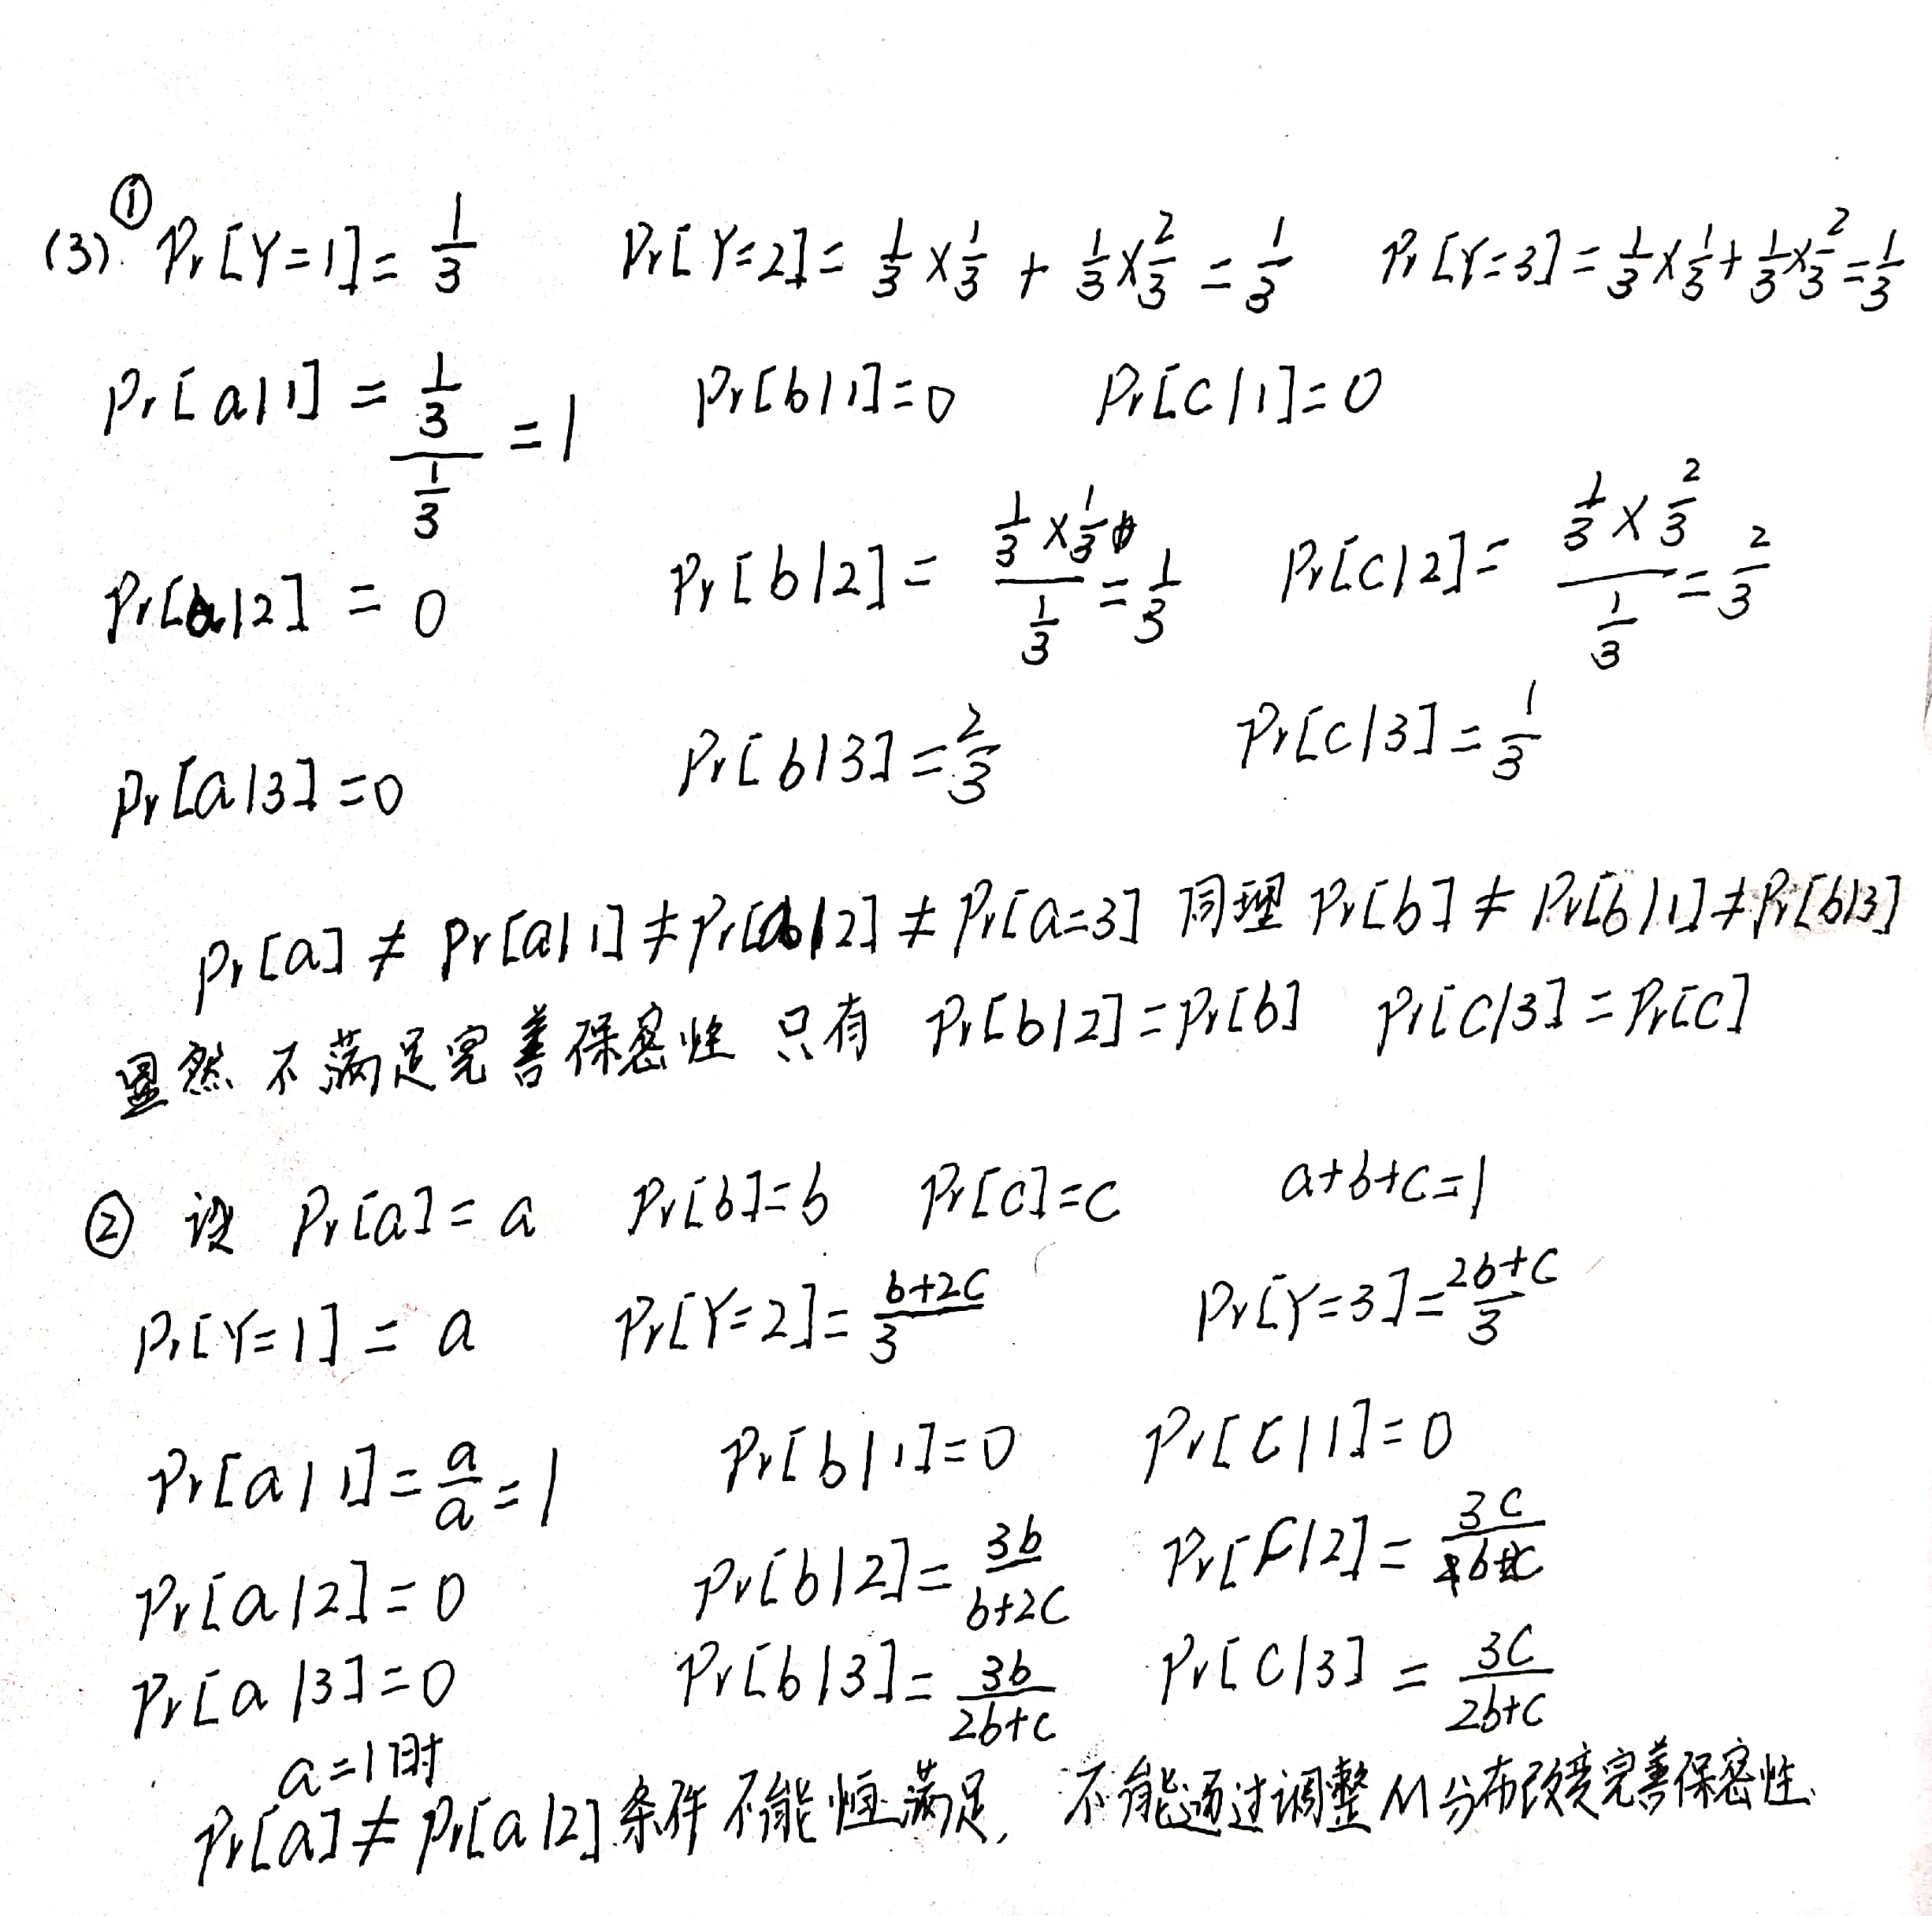 (3). ① Pr[Y=1]= 1/3 Pr[Y=2]= 1/3 × 1/3 + 1/3 × 2/3 = 1/3 Pr[Y=3]= 1/3 × 1/3 + 1/3 × 2/3 = 1/3
Pr[a|1] = (1/3)/(1/3) = 1 Pr[b|1]=0 Pr[C|1]=0
Pr[a|2] = 0 Pr[b|2] = (1/3 × 1/3)/(1/3) = 1/3 Pr[C|2] = (1/3 × 2/3)/(1/3) = 2/3
Pr[a|3]=0 Pr[b|3]= 2/3 Pr[C|3] = 1/3
Pr[a] ≠ Pr[a|1] ≠ Pr[a|2] ≠ Pr[a=3] 同理 Pr[b] ≠ Pr[b|1] ≠ Pr[b|3]
显然 不满足完善保密性 只有 Pr[b|2]=Pr[b] Pr[C|3]=Pr[C]
② 设 Pr[a]= a Pr[b]=b Pr[C]=C a+b+C=1
Pr[Y=1] = a Pr[Y=2]= (b+2C)/3 Pr[Y=3]= (2b+C)/3
Pr[a|1]= a/a = 1 Pr[b|1]=0 Pr[C|1]=0
Pr[a|2]=0 Pr[b|2]= 3b/(b+2C) Pr[C|2]= 3C/
Pr[a|3]=0 Pr[b|3]= 3b/(2b+C) Pr[C|3] = 3C/(2b+C)
a=1时
Pr[a] ≠ Pr[a|2] 条件不能恒满足, 不能通过调整M分布改变完善保密性.